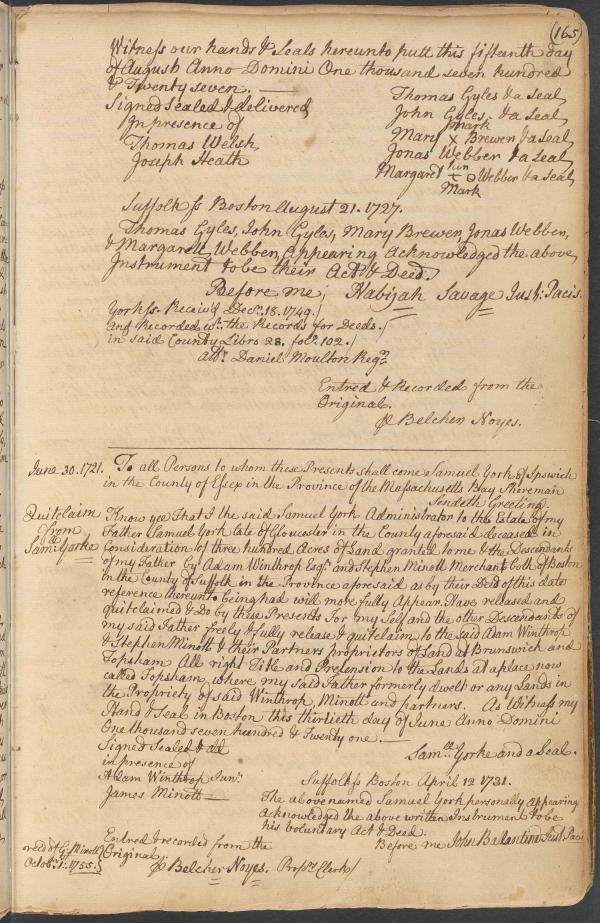 (165)
Witness our hands & Seals hereunto putt this fifteenth day
of August Anno Domini One thousand seven hundred
& Twenty seven.
Signed Sealed & delivered
In presence of
Thomas Welsh
Joseph Heath
Thomas Gyles & a Seal
John Gyles & a Seal
mark
Mary X Brewer & a Seal
Jonas Webber & a Seal
Margaret Webber & a Seal
Mark
Suffolk ss Boston August 21. 1727.
Thomas Gyles, John Gyles, Mary Brewer, Jonas Webber,
& Margarett Webber, Appearing Acknowledged the above
Instrument to be their Act & Deed.
Before me; Habijah Savage Just: Pacis.
York ss. Receiv'd Decr. 18. 1749./
and Recorded wth. the Records for Deeds./
in said County Libro 28. folo. 102./
attr. Daniel Moulton Regr.
Entred & Recorded from the
Original.
Belcher Noyes.
June 30. 1721.
To all Persons to whom these Presents shall come Samuel York of Ipswich
in the County of Essex in the Province of the Massachusetts Bay Shoreman
Sendeth Greeting
Quitclaim
from
Samll Yorke
Know yee That I the said Samuel York Administrator to the Estate of my
Father Samuel York late of Gloucester in the County aforesaid deceased in
Consideration of three hundred Acres of Land granted to me & the Descendants
of my Father by Adam Winthrop Esqr. and Stephen Minott Merchant both of Boston
in the County of Suffolk in the Province aforesaid as by their Deed of this date
reference thereunto being had will more fully Appear. Have released and
quitclaimed & Do by these Presents For my Self and the other Descendants of
my said Father freely & fully release & quitclaim to the said Adam Winthrop
& Stephen Minott & their Partners proprietors of Land at Brunswick and
Topsham All right Title and Pretension to the Lands at a place now
called Topsham, where my said Father formerly dwelt or any Lands in
the Propriety of said Winthrop, Minott and partners. As Witness my
Hand & Seal in Boston this thirtieth day of June Anno Domini
One thousand seven hundred & Twenty one.
Signed Sealed & dd
in presence of
Adam Winthrop Junr.
James Minott
Samll. Yorke and a Seal.
Suffolk ss Boston April 12 1731.
The above named Samuel York personally appearing
Acknowledged the above written Instrument to be
his voluntary Act & Deed.
Before me John Ballantine Just. Paci
Entred & recorded from the
Original.
Belcher Noyes. Proprs. Clerk/
Minott
Octobr. 1. 1755.